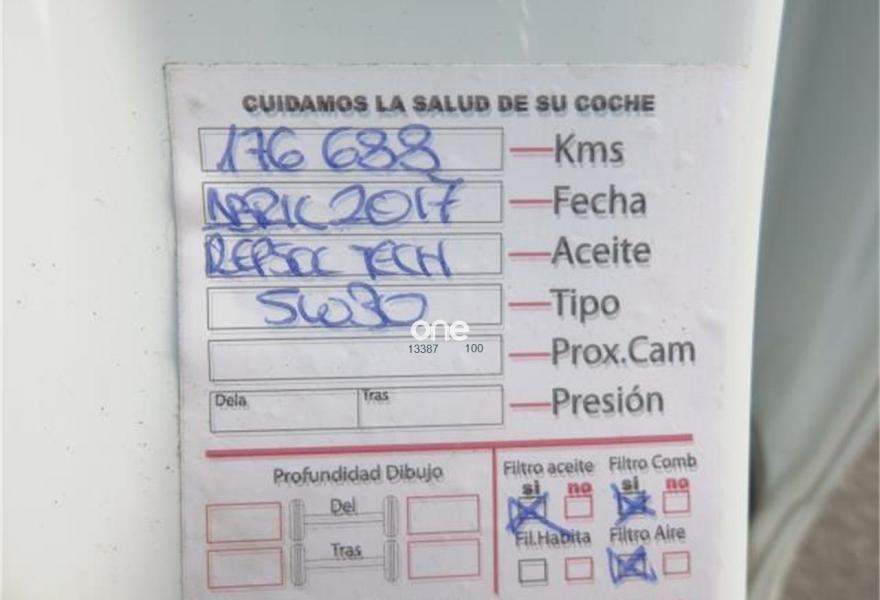 CUIDAMOS LA SALUD DE SU COCHE
176 688 Kms
ABRIL 2017 Fecha
REPSOL TECH Aceite
5W30 Tipo
one
13387 100
Prox.Cam
Dela Tras Presión
Profundidad Dibujo
Del
Tras
Filtro aceite Filtro Comb
si no si no
Fil.Habita Filtro Aire